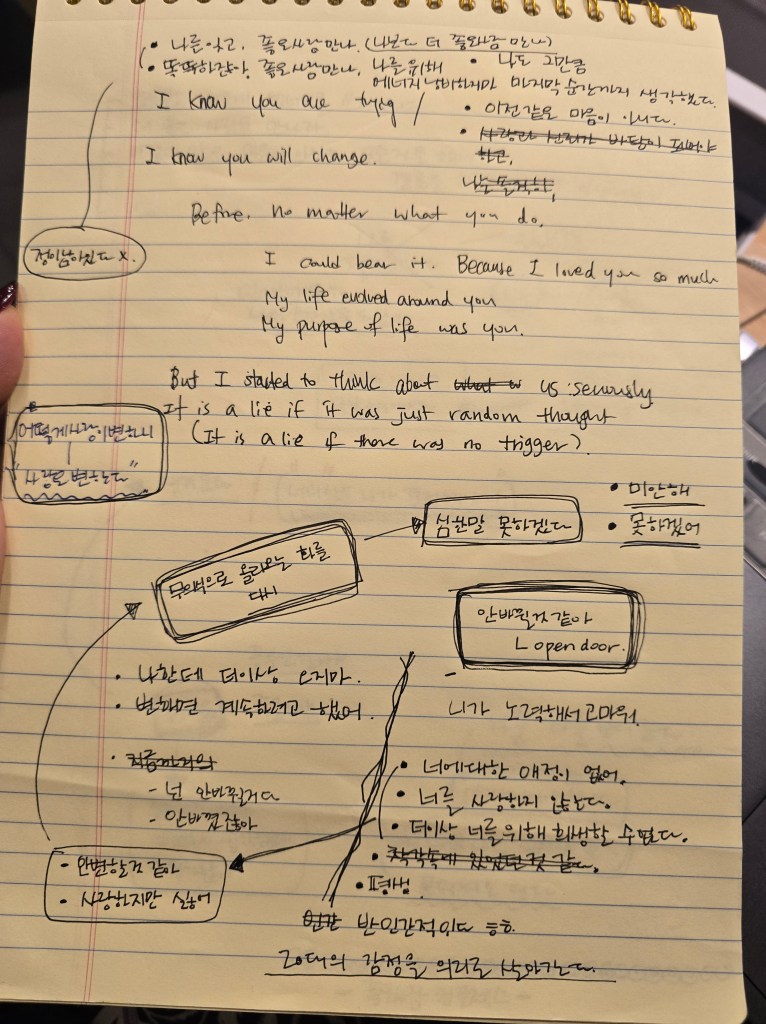 • 나를 잊고, 좋은 사람 만나. (나보다 더 좋은사람 만나)
• 똑똑하잖아, 좋은 사람 만나, 나를 위해 에너지낭비하지마
• 나도 그만큼 마지막 순간까지 생각했다.
I know you are trying /
• 이전같은 마음이 아니다.
• 사랑과 신뢰가 바탕이 되어야 하고,
I know you will change.
나는
Before, no matter what you do,
정이남아있다 x.
I could bear it. Because I loved you so much
My life evolved around you
My purpose of life was you.
But I started to think about what w us seriously
It is a lie if it was just random thought
(It is a lie if there was no trigger).
어떻게 사랑이변하니
"사랑도 변한다"
• 미안해
• 못하겠어
심한말 못하겠다
무의식으로 올라오는 화를 대시
안바뀔것 같아
ㄴ open door.
• 나한테 더이상 오지마.
• 변하면 계속하려고 했어.
- 니가 노력해서 고마워.
• 지금까지의
- 넌 안바뀔거다
- 안바꼈잖아
• 너에대한 애정이 없어.
• 너를 사랑하지 않는다.
• 더이상 너를위해 희생할 수 없다.
• 착각속에 있었던 것 같다.
• 평생.
- 안변할것 같아
• 사랑하지만 싫어
반인간적이다
20대의 감정을 의리로 살아가는다.